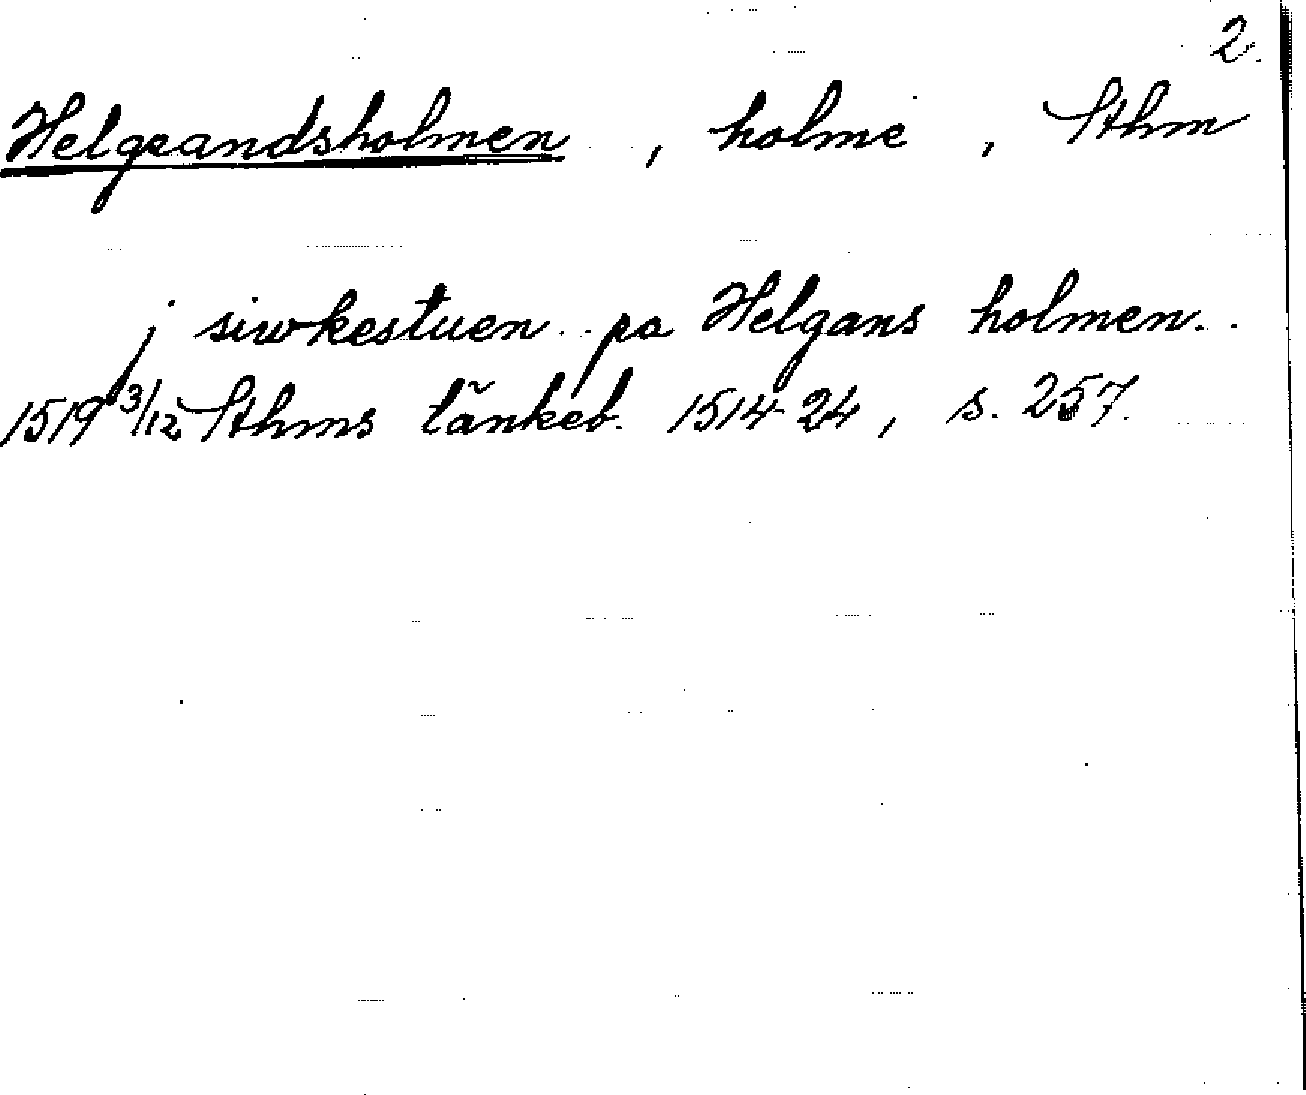 2.
Helgeandsholmen , holme , Sthm
j siwkestuen pa Helgans holmen.
1519 3/12 Sthms tänkeb. 1514-24, s. 257.